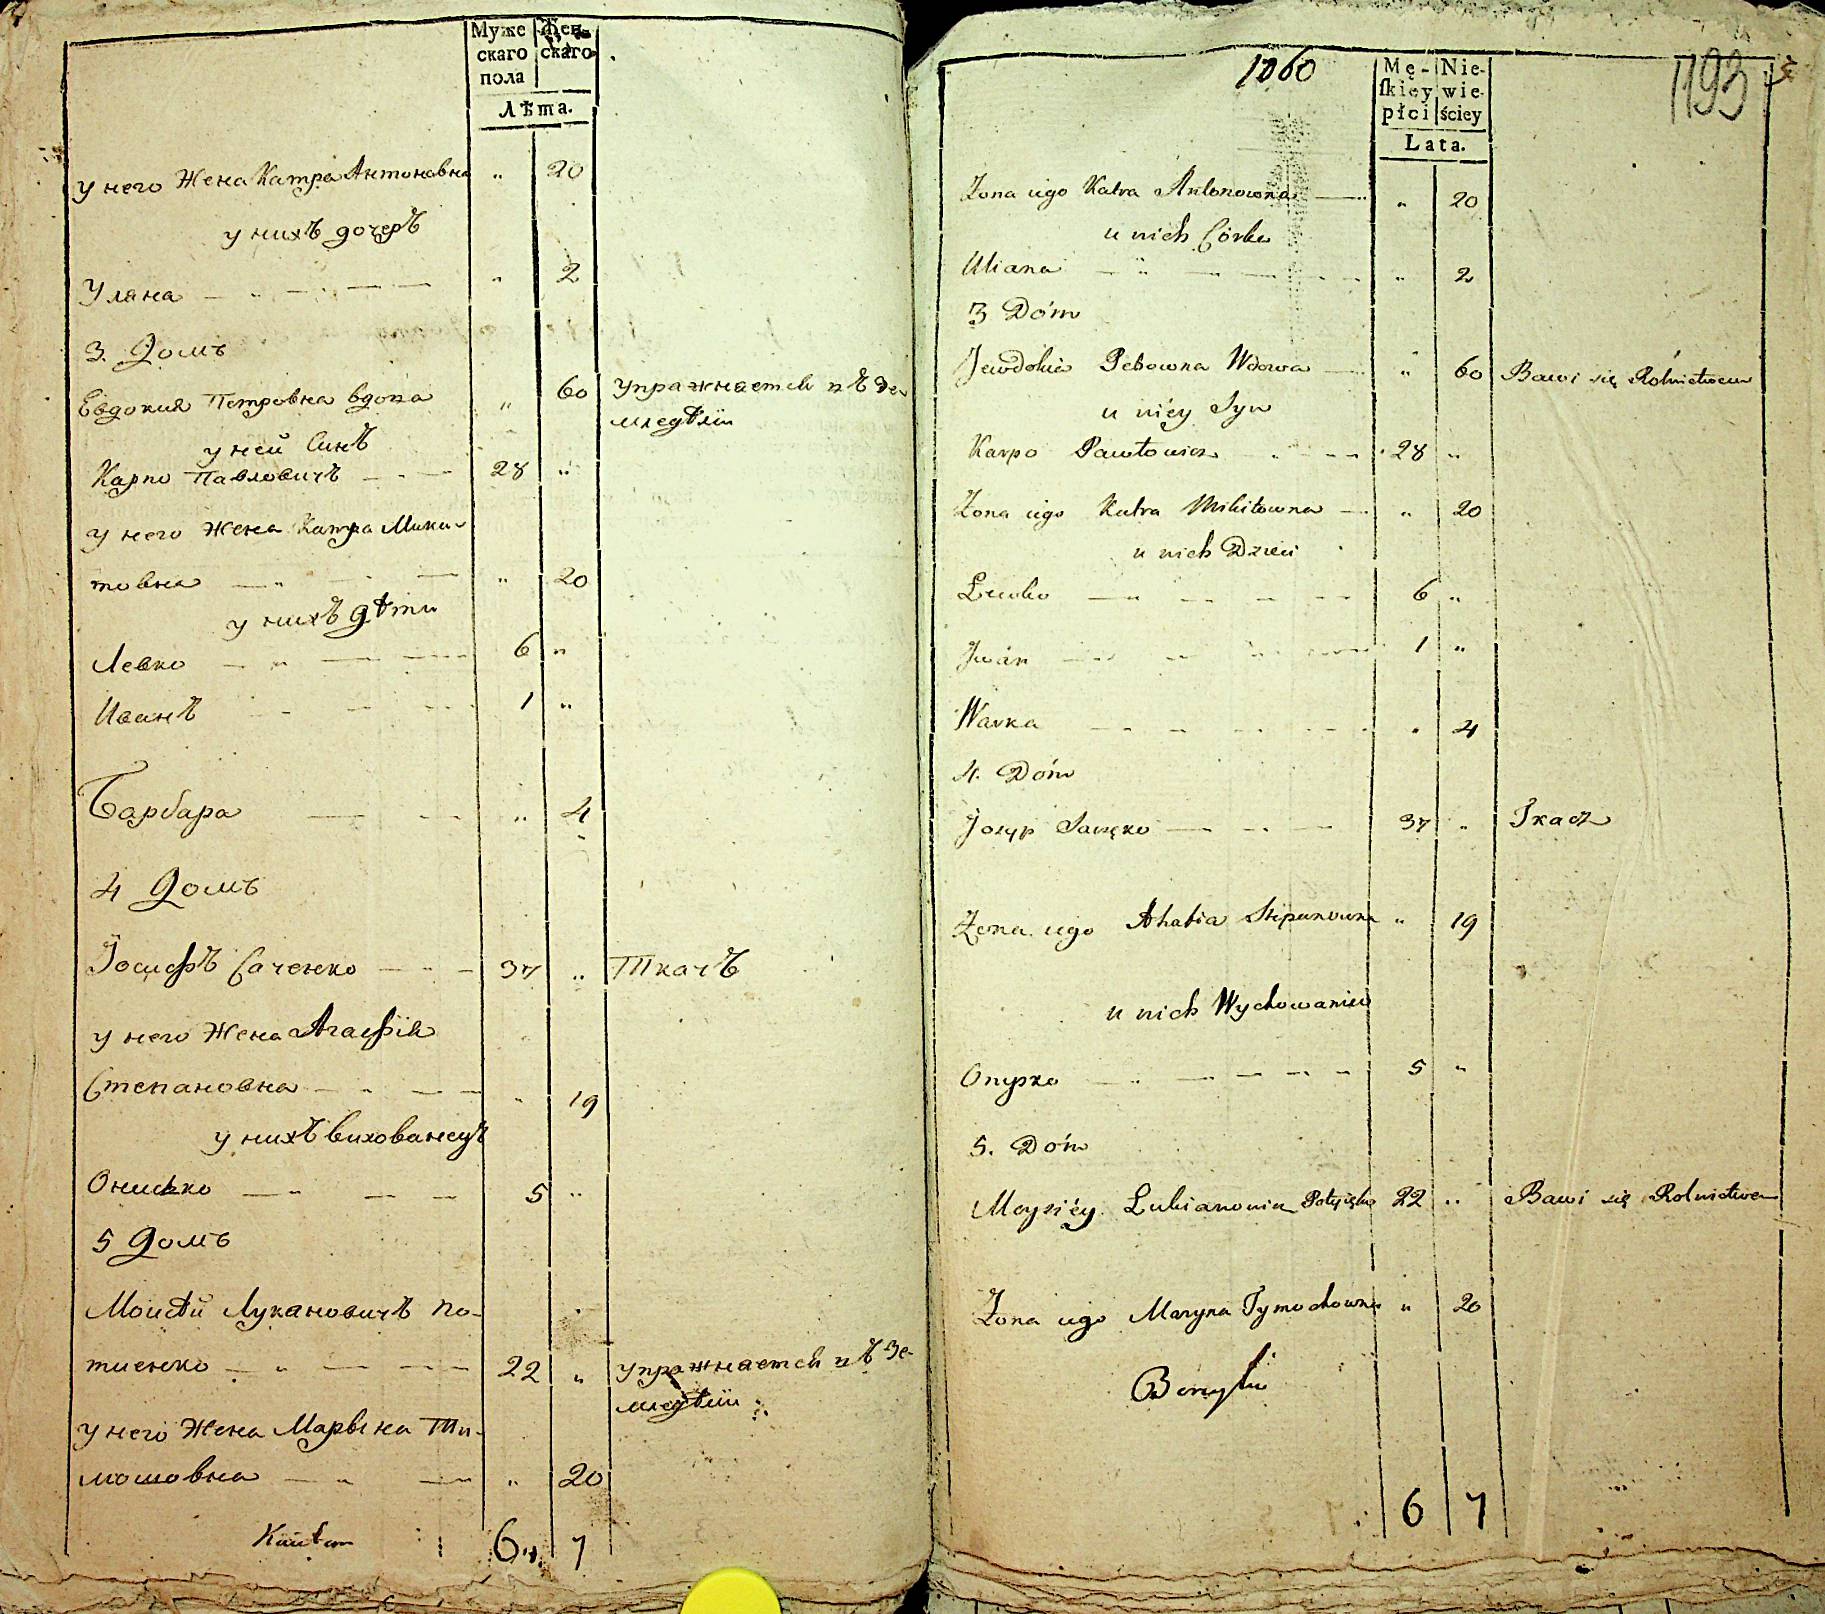 Муже Жен-
скаго скаго
пола
Лѣта.
у него Жена Катра Антоновна „ 20
у нихъ дочеръ
Уляна „ 2
3. Домъ
Евдокия Петровна вдова „ 60 упражнается въ зе-
мледѣлїи
у ней Синъ
Карпо Павловичъ 28 „
у него Жена Катра Мики-
товна „ 20
у нихъ дѣти
Левко 6 „
Иванъ 1 „
Варвара „ 4
4 Домъ
Іосифъ Саченко 37 „ Ткачъ
у него Жена Агафія
Степановна „ 19
у нихъ вихованецъ
Онисько 5 „
5 Домъ
Моисѣй Лукановичъ По-
тиенко 22 „ упражнается въ Зе-
мледѣлїи
у него Жена Марына Ти-
мошовна „ 20
6 7
1060
1193
Mę- Nie-
skiey wie-
płci ściey
Lata.
Żona iego Katra Antonowna „ 20
u nich Córka
Uliana „ 2
3 Dóm
Jewdokia Wdowa „ 60 Bawi się Rolnictwem
u niéy Syn
Karpo Pawłowicz 28 „
Żona iego Katra Mikitowna „ 20
u nich Dzieci
Lewko 6 „
Jwan 1 „
Warka „ 4
4. Dóm
Jozyp Saczęko 37 „ Tkacz
Żona iego Ahafia Stepanowna „ 19
u nich Wychowaniec
Onyszko 5 „
5. Dóm
Moysiéy Lukianowicz 22 „ Bawi się Rolnictwem
Żona iego Maryna Tymochowna „ 20
6 7